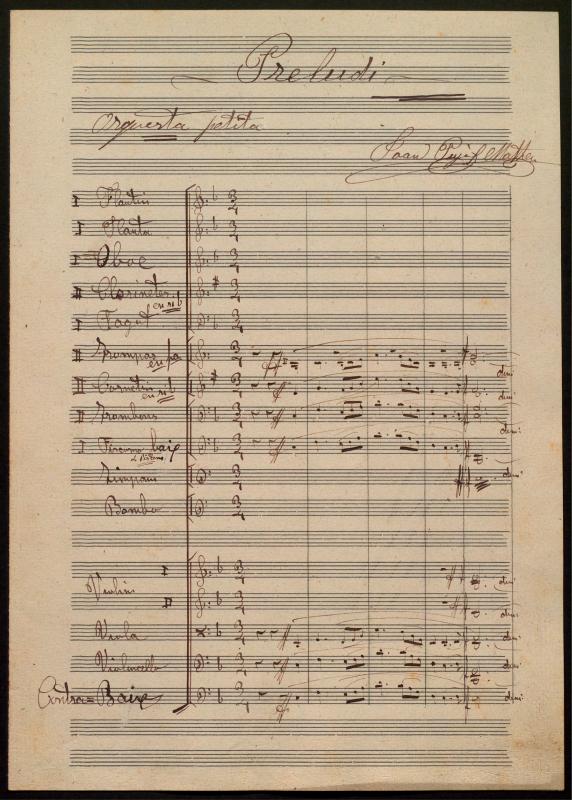 Preludi
Orquesta petita
Joan Pujol Matheu
I Flautin
I Flauta
I Oboe
II Clarinetes en si b
I Fagot
II Trompas en fa
II Cornetin en si b
II Trombons
I baix
Timpani
Bombo
I
Violins
II
Viola
Violoncello
Contra=Baix
dim:
dim:
dim:
dim:
dim:
dim:
dim:
dim:
dim:
dim: